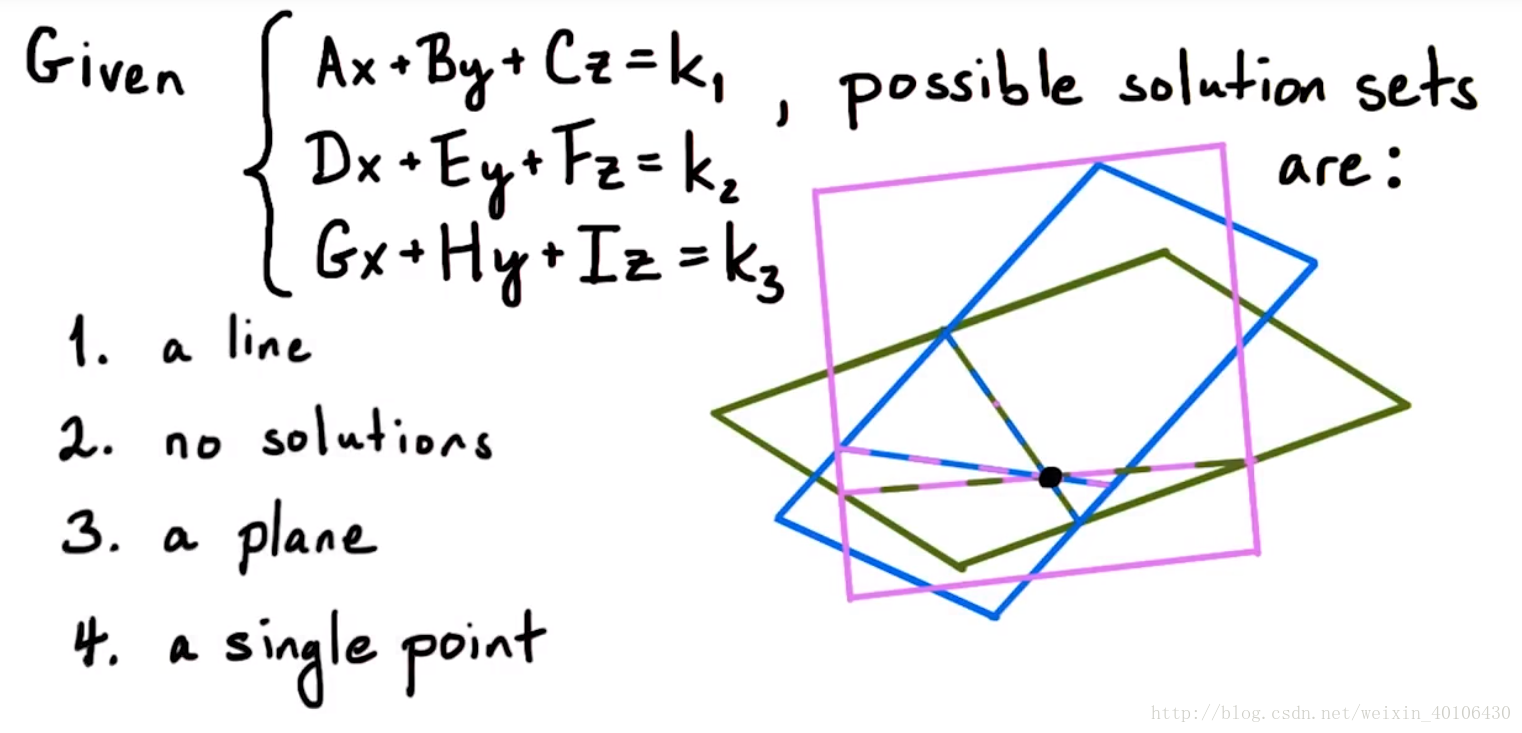 Given { Ax + By + Cz = k₁ , possible solution sets are:
Dx + Ey + Fz = k₂
Gx + Hy + Iz = k₃
1. a line
2. no solutions
3. a plane
4. a single point
http://blog.csdn.net/weixin_40106430